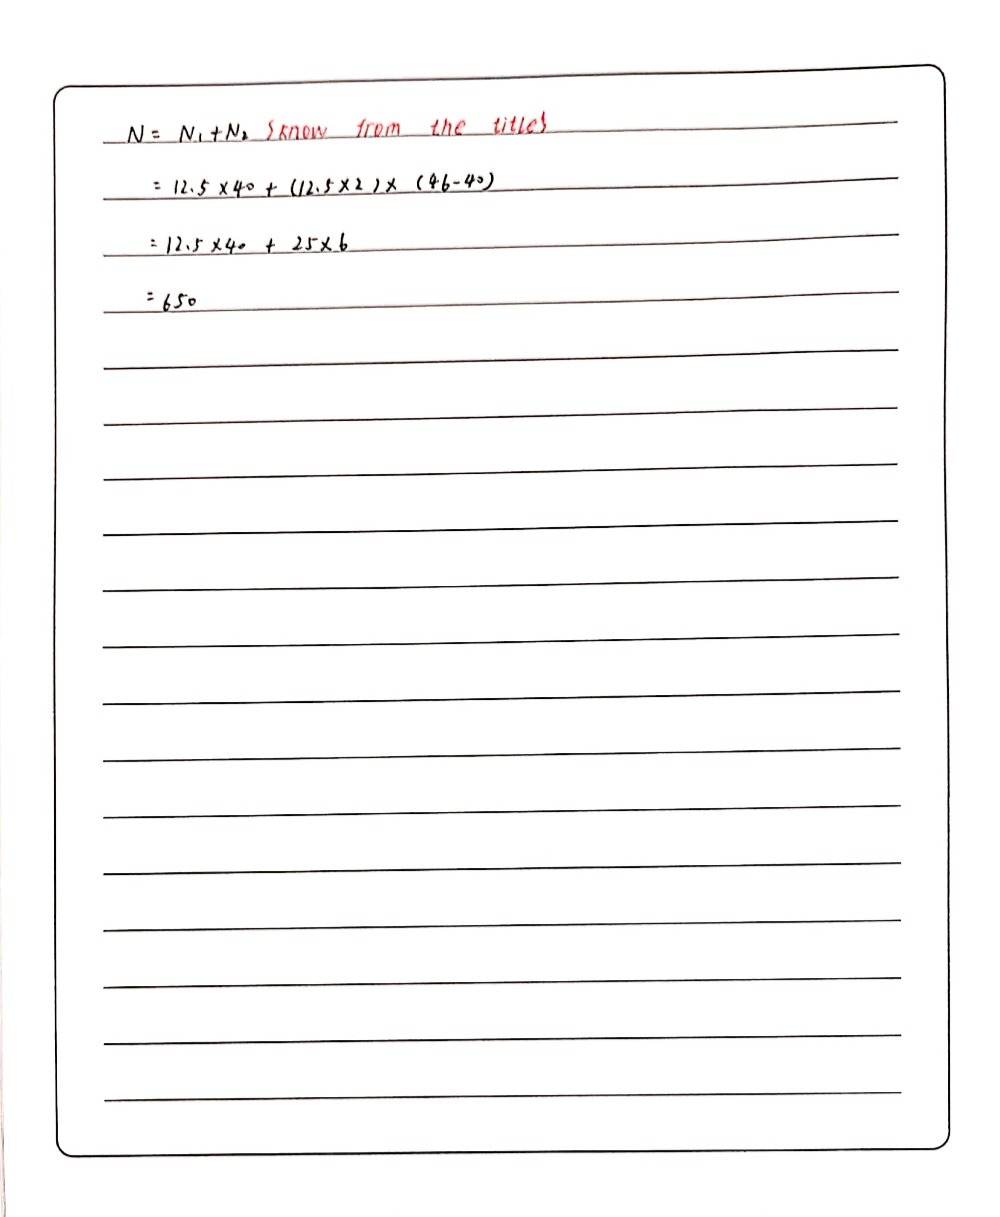 N = N₁+N₂ {know from the title}
= 12.5 × 40 + (12.5 × 2) × (46-40)
= 12.5 × 40 + 25 × 6
= 650